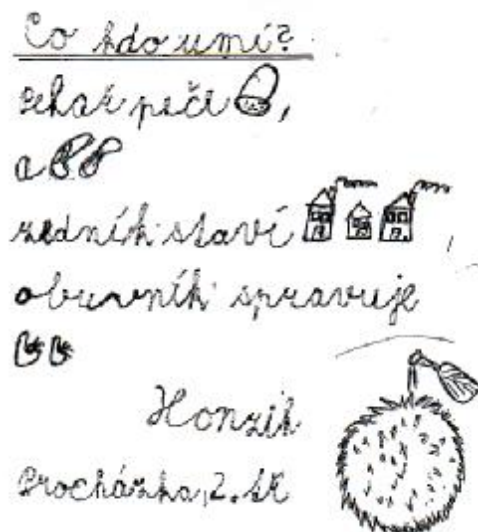 Co kdo umí?
Pekař peče ,
a
zedník staví ,
obuvník spravuje
Honzík
Procházka, 2. tř.